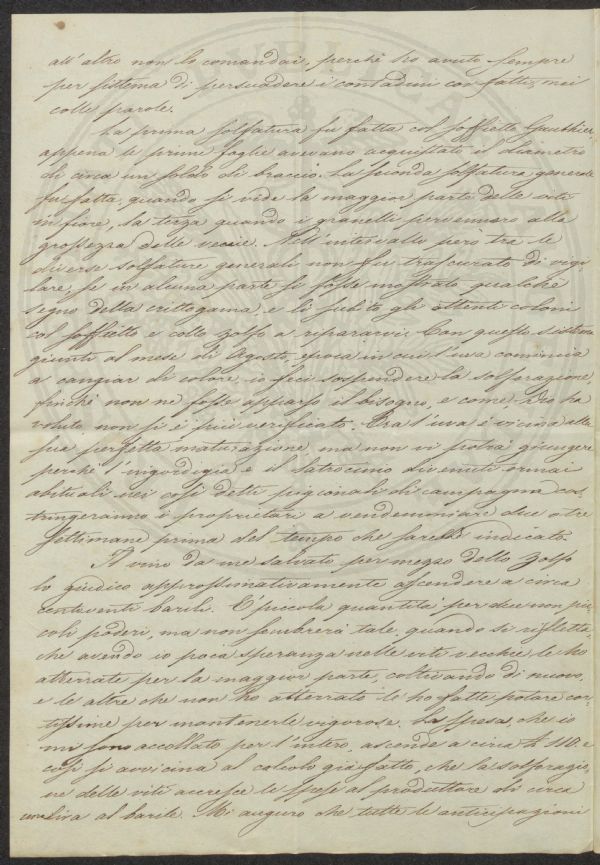 all'altro non lo comandai, perchè ho avuto sempre
per sistema di persuadere i contadini coi fatti, mai
colle parole.
La prima solfatura fu fatta col soffietto Gauthier,
appena le prime foglie avevano acquistato il diametro
di circa un soldo di braccio. La seconda solfatura generale
fu fatta, quando si vide la maggior parte delle viti
in fiore, la terza quando i granelli pervennero alla
grossezza delle veccie. Nell'intervallo però tra le
diverse solfature generali non fu trascurato di vigi
lare, se in alcuna parte si fosse mostrato qualche
segno della crittogama, e lì subito gli attenti coloni
col soffietto e collo zolfo a ripararvi. Con questo sistema
giunti al mese di Agosto, epoca in cui l'uva comincia
a cangiar di colore, io feci sospendere la solforazione,
finchè non ne fosse apparso il bisogno, e come Dio ha
voluto non si è più verificato. Ora l'uva è vicina alla
sua perfetta maturazione, ma non vi potrà giungere
perchè l'ingordigia e il latrocinio divenuti ormai
abituali nei così detti pigionali di campagna cos
tringeranno i proprietari a vendemmiare due o tre
settimane prima del tempo che sarebbe indicato.
Il vino da me salvato per mezzo dello zolfo
lo giudico approssimativamente ascendere a circa
centoventi barili. È piccola quantità per dieci non pic
coli poderi, ma non sembrerà tale, quando si rifletta
che avendo io poca speranza nelle viti vecchie le ho
atterrate per la maggior parte, coltivando di nuovo,
e le altre che non ho atterrato le ho fatte potare cor
tissime per mantenerle vigorose. La spesa, che io
mi sono accollato per l'intero, ascende a circa £ 110, e
così si avvicina al calcolo già fatto, che la solforazio
ne delle viti accresce le spese al produttore di circa
una lira al barile. Mi auguro che tutte le anticipazioni